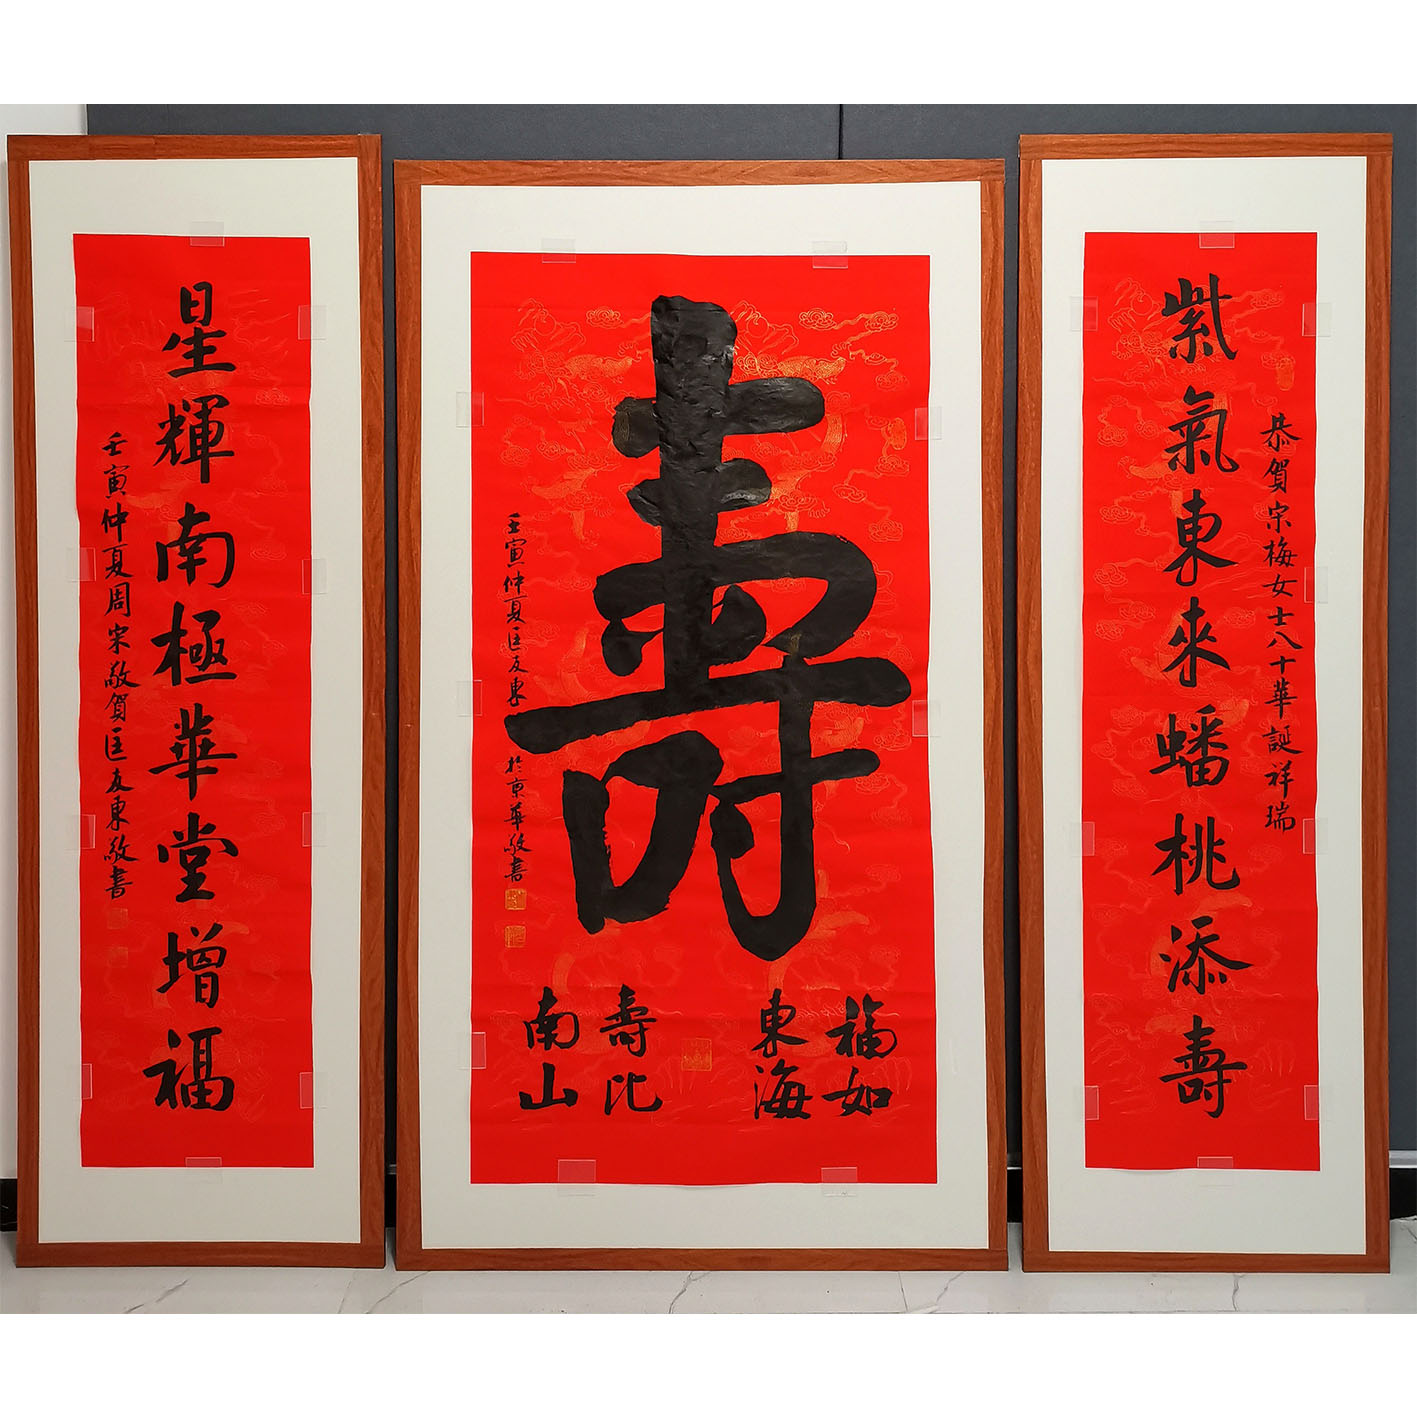 恭賀宋梅女士八十華誕祥瑞
紫氣東來蟠桃添壽
壽
福如
東海
壽比
南山
壬寅仲夏匡友東於京華敬書
星輝南極華堂增福
壬寅仲夏周宋敬賀匡友東敬書